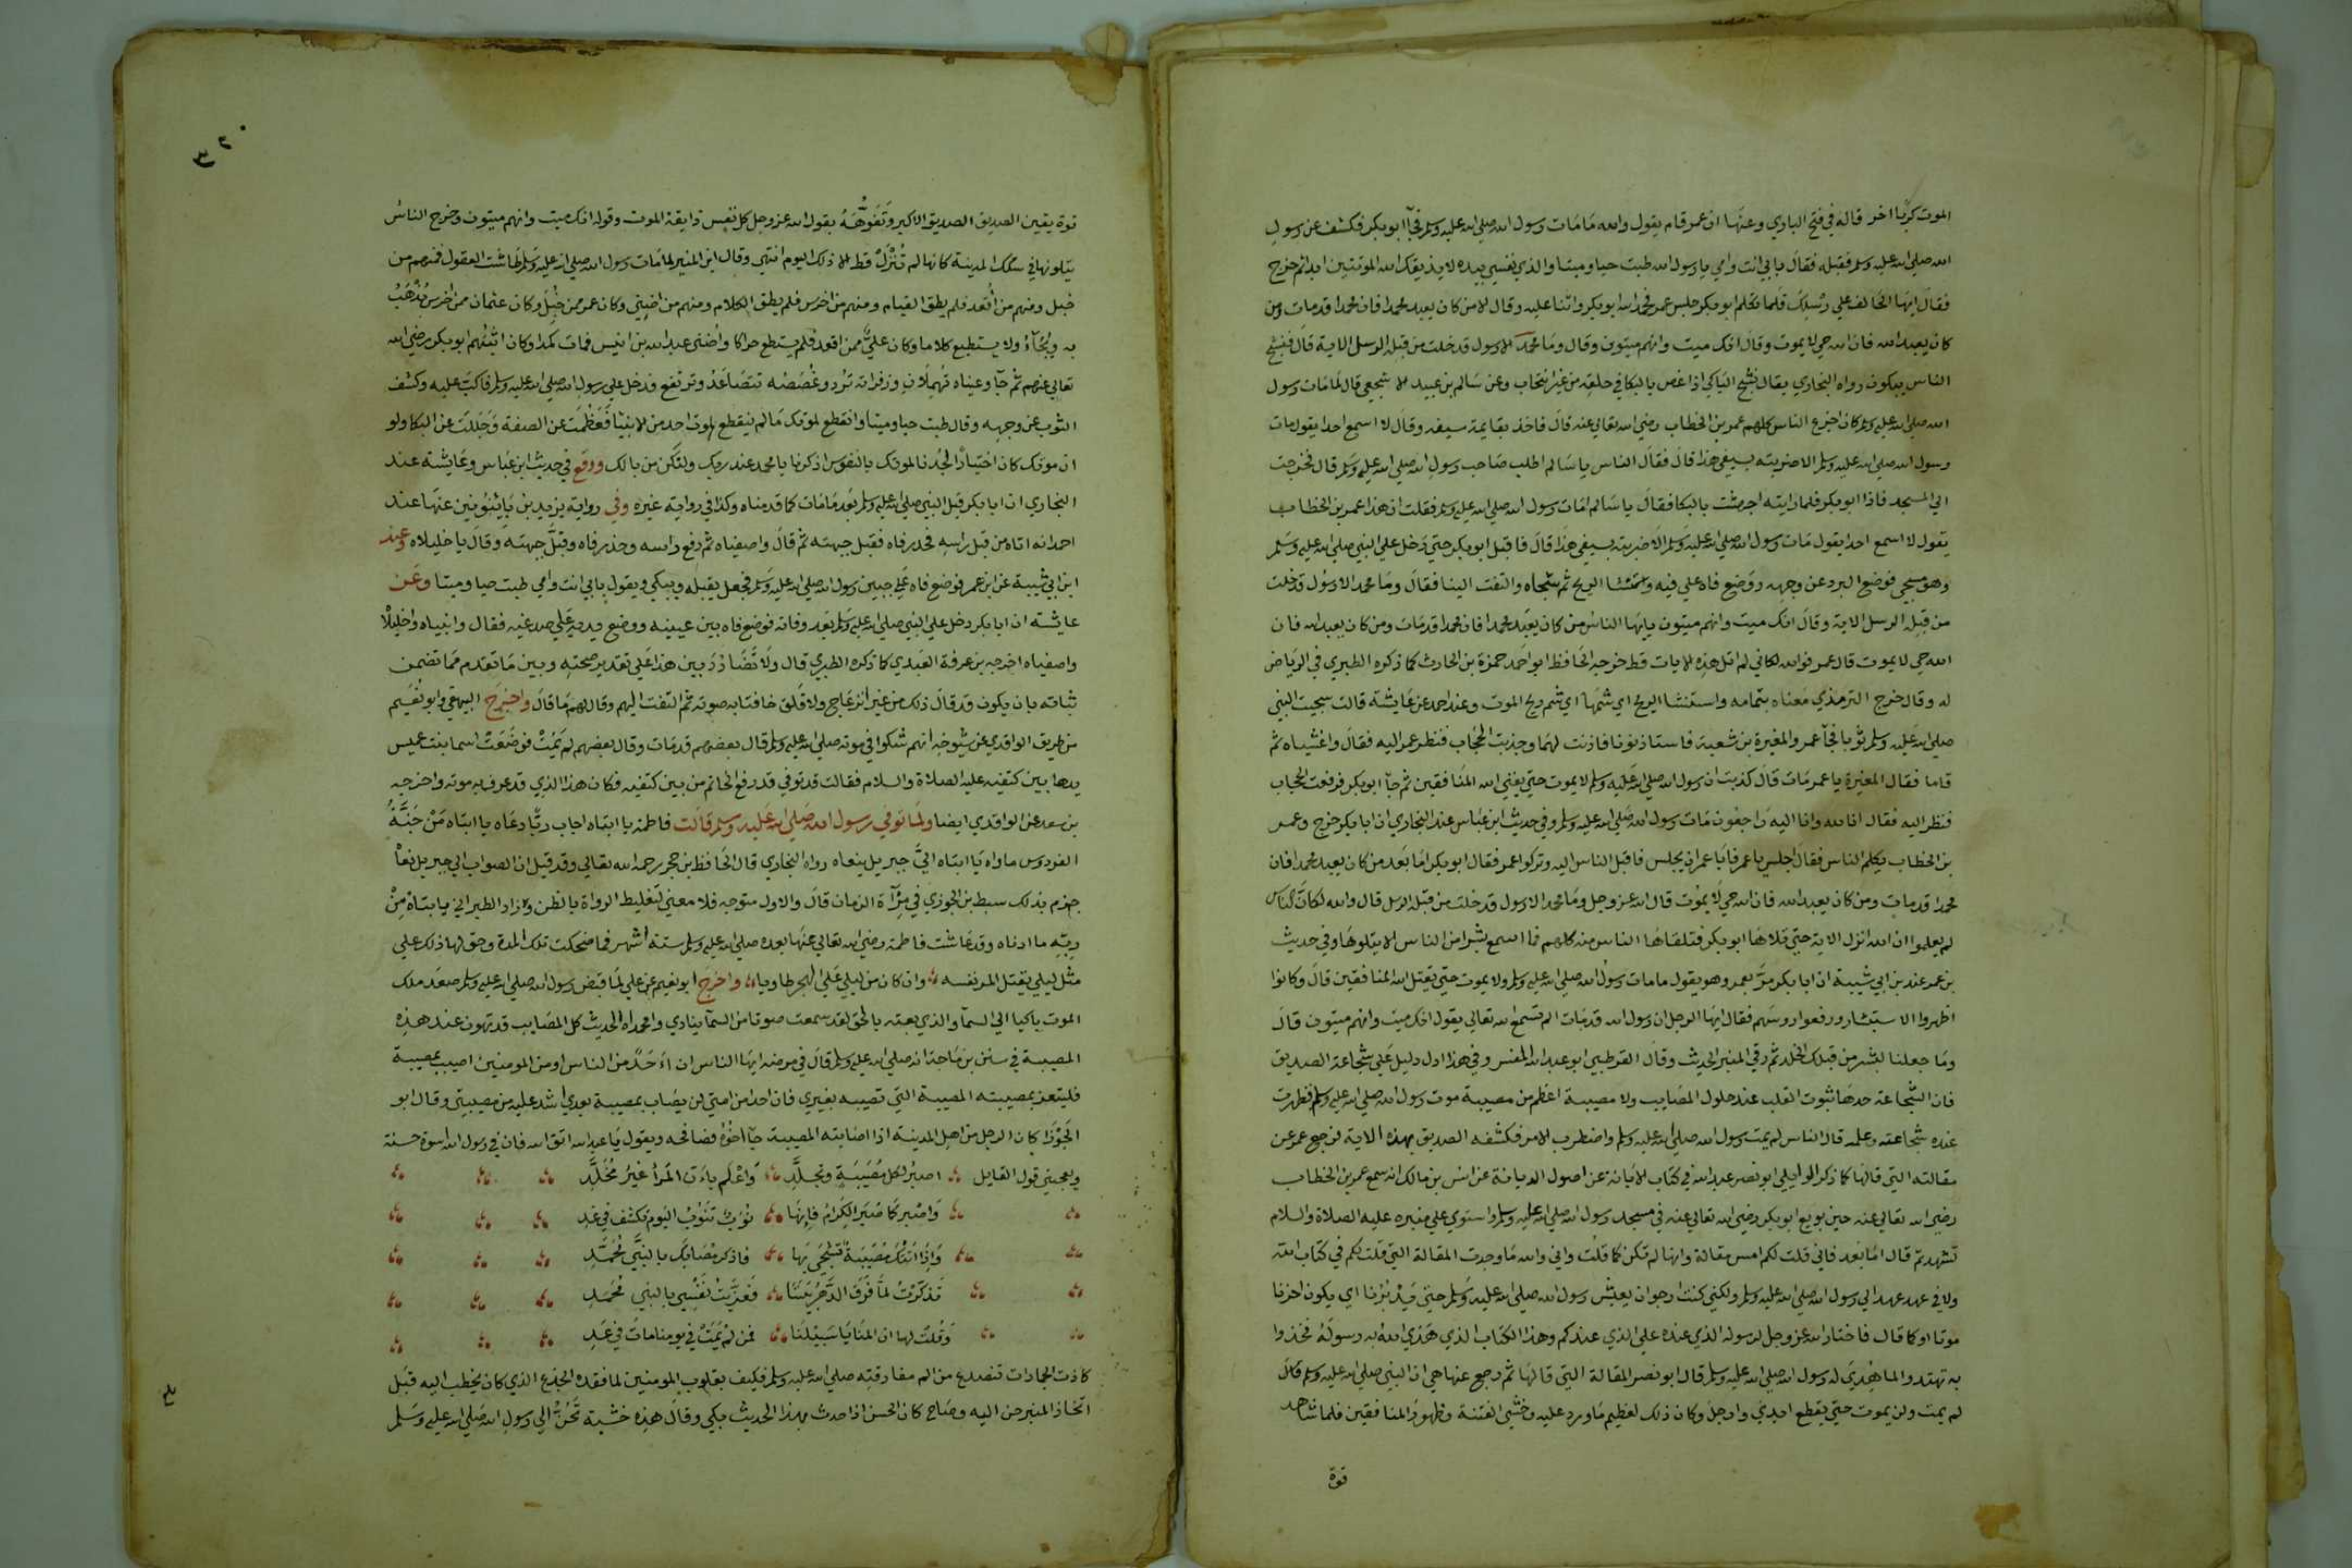 الموت كربا اخر قاله في فتح الباري وعنها ان عمر قام يقول والله مامات رسول الله صلي الله عليه وسلم فجآ ابو بكر فكشف عن رسول
الله صلي الله عليه وسلم فقبله فقال بابي انت وامي يا رسول الله طبت حيا وميتا والذي نفسي بيده لا يذيقك الله الموتتين ابدا ثم خرج
فقال ايها الحالف علي رسلك فلما تكلم ابو بكر جلس عمر فحمد الله ابو بكر واثنا عليه وقال الا من كان يعبد محمدا فان محمدا قدمات ومن
كان يعبد الله فان الله حي لا يموت وقال انك ميت وانهم ميتون وقال وما محمد الا رسول قد خلت من قبله الرسل الاية قال فنشج
الناس يبكون رواه البخاري يقال نشج الباكي اذا غص بالبكا في حلقه من غير انتحاب وعن سالم بن عبيد الاشجعي قال لما مات رسول
الله صلي الله عليه وسلم كان اجزع الناس كلهم عمر بن الخطاب رضي الله تعالي عنه قال فاخذ بقايمة سيفه وقال لا اسمع احدا يقول مات
رسول الله صلي الله عليه وسلم الا ضربته بسيفي هذا قال فقال الناس يا سالم اطلب صاحب رسول الله صلي الله عليه وسلم قال فخرجت
الي المسجد فاذا ابو بكر فلما رايته اجهشت بالبكا فقال يا سالم امات رسول الله صلي الله عليه وسلم فقلت ان هذا عمر بن الخطاب
يقول لا اسمع احدا يقول مات رسول الله صلي الله عليه وسلم الا ضربته بسيفي هذا قال فاقبل ابو بكر حتي دخل علي النبي صلي الله عليه وسلم
وهو مسجي فوضع البرد عن وجهه ووضع فاه علي فيه واستنشا الريح ثم سجاه والتفت الينا فقال وما محمد الا رسول قد خلت
من قبله الرسل الاية وقال انك ميت وانهم ميتون يايها الناس من كان يعبد محمدا فان محمدا قدمات ومن كان يعبد الله فان
الله حي لا يموت قال عمر فوالله لكاني لم اتل هذه الايات قط خرجه الحافظ ابو احمد حمزة بن الحارث كما ذكره الطبري في الرياض
له وقال خرج الترمذي معناه بتمامه واستنشا الريح اي شمها اي شم ريح الموت وعند احمد عن عايشة قالت سجيت النبي
صلي الله عليه وسلم ثوبا فجآ عمر والمغيرة بن شعبة فاستاذنونا فاذنت لهما وجذبت الحجاب فنظر عمر اليه فقال واغشياه ثم
قاما فقال المغيرة يا عمر مات قال كذبت ان رسول الله صلي الله عليه وسلم لا يموت حتي يفني الله المنافقين ثم جآ ابو بكر فرفعت الحجاب
فنظر اليه فقال انا لله وانا اليه راجعون مات رسول الله صلي الله عليه وسلم وفي حديث ابن عباس عند البخاري ان ابا بكر خرج وعمر
بن الخطاب يكلم الناس فقال اجلس يا عمر فأبا عمر ان يجلس فاقبل الناس اليه وتركوا عمر فقال ابو بكر اما بعد من كان يعبد محمدا فان
محمدا قدمات ومن كان يعبد الله فان الله حي لا يموت قال الله عز وجل وما محمد الا رسول قد خلت من قبله الرسل قال والله لكان الناس
لم يعلموا ان الله انزل الاية حتي تلاها ابو بكر فتلقاها الناس منه كلهم فما اسمع بشرا من الناس الا يتلوها وفي حديث
بن عمر عند بن ابي شيبة ان ابا بكر مر بعمر وهو يقول مامات رسول الله صلي الله عليه وسلم ولا يموت حتي يقتل الله المنافقين قال وكانوا
اظهروا الاستبشار ورفعوا روسهم فقال ايها الرجل ان رسول الله قدمات الم تسمع الله تعالي يقول انك ميت وانهم ميتون قال
وما جعلنا لبشر من قبلك الخلد ثم رقي المنبر الحديث وقال القرطبي ابو عبد الله المفسر وفي هذا ادل دليل علي شجاعة الصديق
فان الشجاعة حدها ثبوت القلب عند حلول المصايب ولا مصيبة اعظم من مصيبة موت رسول الله صلي الله عليه وسلم فظهرت
عنده شجاعته وعلمه قال الناس لم يمت رسول الله صلي الله عليه وسلم واضطرب الامر فكشفه الصديق بهذه الاية فرجع عمر عن
مقالته التي قالها كما ذكر الوايلي ابو نصر عبد الله في كتاب الابانة عن اصول الديانة عن انس بن مالك انه سمع عمر بن الخطاب
رضي الله تعالي عنه حين بويع ابو بكر رضي الله تعالي عنه في مسجد رسول الله صلي الله عليه وسلم واستوي علي منبره عليه الصلاة والسلام
تشهد ثم قال اما بعد فاني قلت لكم امس مقالة وانها لم تكن كما قلت واني والله ما وجدت المقالة التي قلت لكم في كتاب الله
ولا في عهد عهد الي رسول الله صلي الله عليه وسلم ولكني كنت ارجو ان يعيش رسول الله صلي الله عليه وسلم حتي يدبرنا اي يكون اخرنا
موتا او كما قال فاختار الله عز وجل لرسوله الذي عنده علي الذي عندكم وهذا الكتاب الذي هدي الله به رسوله فخذوا
به تهتدوا لما هدي له رسول الله صلي الله عليه وسلم قال ابو نصر المقالة التي قالها ثم رجع عنها هي ان النبي صلي الله عليه وسلم قال
لم يمت ولن يموت حتي يقطع ايدي وارجل وكان ذلك لعظيم ما ورد عليه وخشي الفتنة وظهور المنافقين فلما شاهد
قوة
٣٢٠
قوة يقين الصديق الصديق الاكبر وتفوهه بقول الله عز وجل كل نفس ذايقة الموت وقوله انك ميت وانهم ميتون وخرج الناس
يتلونها في سكك المدينة كانها لم تنزل قط الا ذلك اليوم انتهي وقال ابن المنير لما مات رسول الله صلي الله عليه وسلم طاشت العقول فمنهم من
خبل ومنهم من أقعد فلم يطق القيام ومنهم من اخرس فلم يطق الكلام ومنهم من اضني وكان عمر ممن خبل وكان عثمان ممن اخرس يذهب
به ويجآء ولا يستطيع كلاما وكان علي ممن اقعد فلم يستطع حراكا واضني عبد الله بن انيس فمات كمدا وكان اثبتهم ابو بكر رضي الله
تعالي عنهم ثم جآ وعيناه تهملان وزفراته تردد وغصصه تتصاعد وترتفع فدخل علي رسول الله صلي الله عليه وسلم فاكب عليه وكشف
الثوب عن وجهه وقال طبت حيا وميتا وانقطع لموتك مالم ينقطع لموت احد من الانبيا فعظمت عن الصفة وجللت عن البكا ولو
ان موتك كان اختيارا لجدنا لموتك بالنفوس اذكرنا يا محمد عند ربك ولنكن من بالك ووقع في حديث ابن عباس وعايشة عند
البخاري ان ابا بكر قبل النبي صلي الله عليه وسلم بعد مامات كما قدمناه وكذا في رواية غيره وفي رواية يزيد بن بابنوس عنها عند
احمد انه اتاه من قبل راسه فحدر فاه فقبل جبهته ثم قال واصفياه ثم رفع راسه وحدر فاه وقبل جبهته وقال يا خليلاه وعند
ابن ابي شيبة عن ابن عمر فوضع فاه علي جبين رسول الله صلي الله عليه وسلم فجعل يقبله ويبكي ويقول بابي انت وامي طبت حيا وميتا وعن
عايشة ان ابا بكر دخل علي النبي صلي الله عليه وسلم بعد وفاته فوضع فاه بين عينيه ووضع يديه علي صدغيه فقال وانبياه واخليلاه
واصفياه اخرجه بن عرفة العبدي كما ذكره الطبري قال ولا تضادد بين هذا علي تقدير صحته وبين ما تقدم مما تضمن
ثباته بان يكون قد قال ذلك من غير انزعاج ولا قلق خافتا به صوته ثم التفت اليهم وقال لهم ما قال واخرج البيهقي وابو نعيم
من طريق الواقدي عن شيوخه انهم شكوا في موته صلي الله عليه وسلم قال بعضهم قدمات وقال بعضهم لم يمت فوضعت اسما بنت عميس
يدها بين كتفيه عليه الصلاة والسلام فقالت قد توفي قد رفع الخاتم من بين كتفيه فكان هذا الذي قد عرف به موته واخرجه
بن سعد عن الواقدي ايضا ولما توفي رسول الله صلي الله عليه وسلم قالت فاطمة يا ابتاه اجاب ربا دعاه يا ابتاه من جنة
الفردوس ماواه يا ابتاه الي جبريل ينعاه رواه البخاري قال الحافظ بن حجر رحمه الله تعالي وقد قيل ان الصواب الي جبريل نعاه
جزم بذلك سبط بن الجوزي في مرآة الزمان قال والاول متوجه فلا معني لتغليط الرواة بالظن وزاد الطبراني يا ابتاه من
ربه ما ادناه وقد عاشت فاطمة رضي الله تعالي عنها بعده صلي الله عليه وسلم ستة أشهر فما ضحكت تلك المدة وحق لها ذلك علي
مثل ليلي يقتل المر نفسه وان كان من ليلي علي الهجر طاويا واخرج ابو نعيم عن علي لما قبض رسول الله صلي الله عليه وسلم صعد ملك
الموت باكيا الي السمآ والذي بعثه بالحق لقد سمعت صوتا من السمآ ينادي وامحمداه الحديث كل المصايب قد تهون عند هذه
المصيبة في سنن بن ماجة انه صلي الله عليه وسلم قال في مرضه ايها الناس ان احد من الناس او من المومنين اصيب بمصيبة
فليتعز بمصيبته المصيبة التي تصيبه بغيري فان احدا من امتي لن يصاب بمصيبة بعدي اشد عليه من مصيبتي وقال ابو
الجوزا كان الرجل من اهل المدينة اذا اصابته المصيبة جآ اخوه فصافحه ويقول يا عبد الله اتق الله فان في رسول الله اسوة حسنة
ويعجبني قول القايل اصبر لكل مصيبة وتجلد واعلم بان المرأ غير مخلد
واصبر كما صبر الكرام فانها نوب تنوب اليوم تكشف في غد
واذا اتتك مصيبة تشجي بها فاذكر مصابك بالنبي محمد
تذكرت لما فرق الدهر بيننا فعزيت نفسي بالنبي محمد
وقلت لها ان المنايا سبيلنا فمن لم يمت في يومنا مات في غد
كادت الجمادات تتصدع من الم مفارقته صلي الله عليه وسلم فكيف بقلوب المومنين لما فقده الجذع الذي كان يخطب اليه قبل
اتخاذ المنبر حن اليه وصاح كان الحسن اذا حدث بهذا الحديث بكي وقال هذه خشبة تحن الي رسول الله صلي الله عليه وسلم